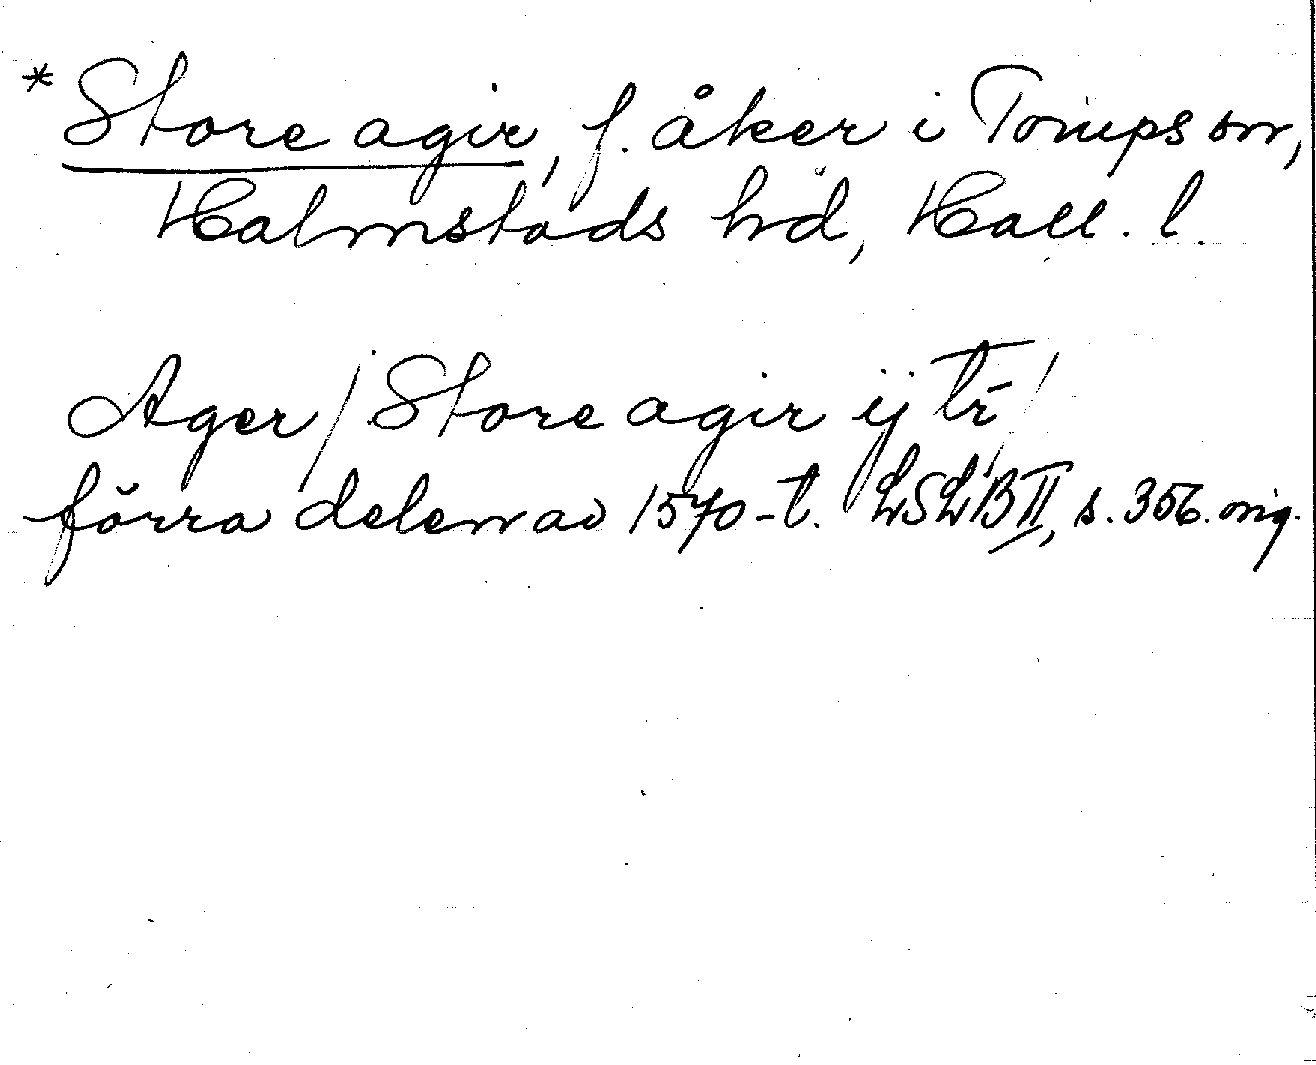 * Store agir, f. åker i Torups sn,
Halmstads hd, Hall. l.
Ager / Store agir ij tr̄ /
förra delen av 1570-t. LSLB II, s. 356. orig.